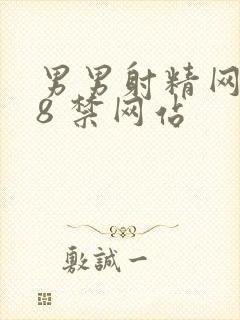 男男射精网
8 禁网佔
敷誠一